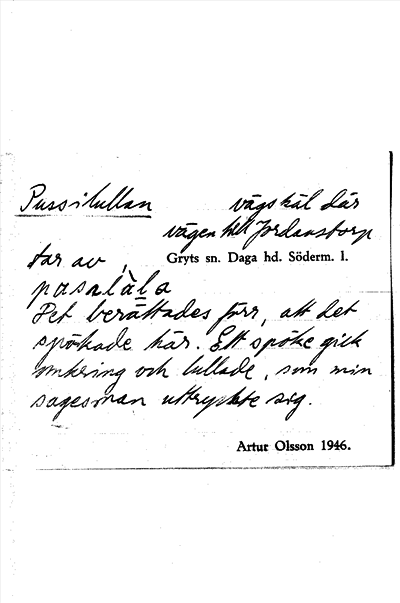 Pussilullan vägskäl där
vägen till Jordanstorp
tar av,
Gryts sn. Daga hd. Söderm. l.
pasalàla
Det berättades förr, att det
spökade här. Ett spöke gick
omkring och lullade, som min
sagesman uttryckte sig.
Artur Olsson 1946.